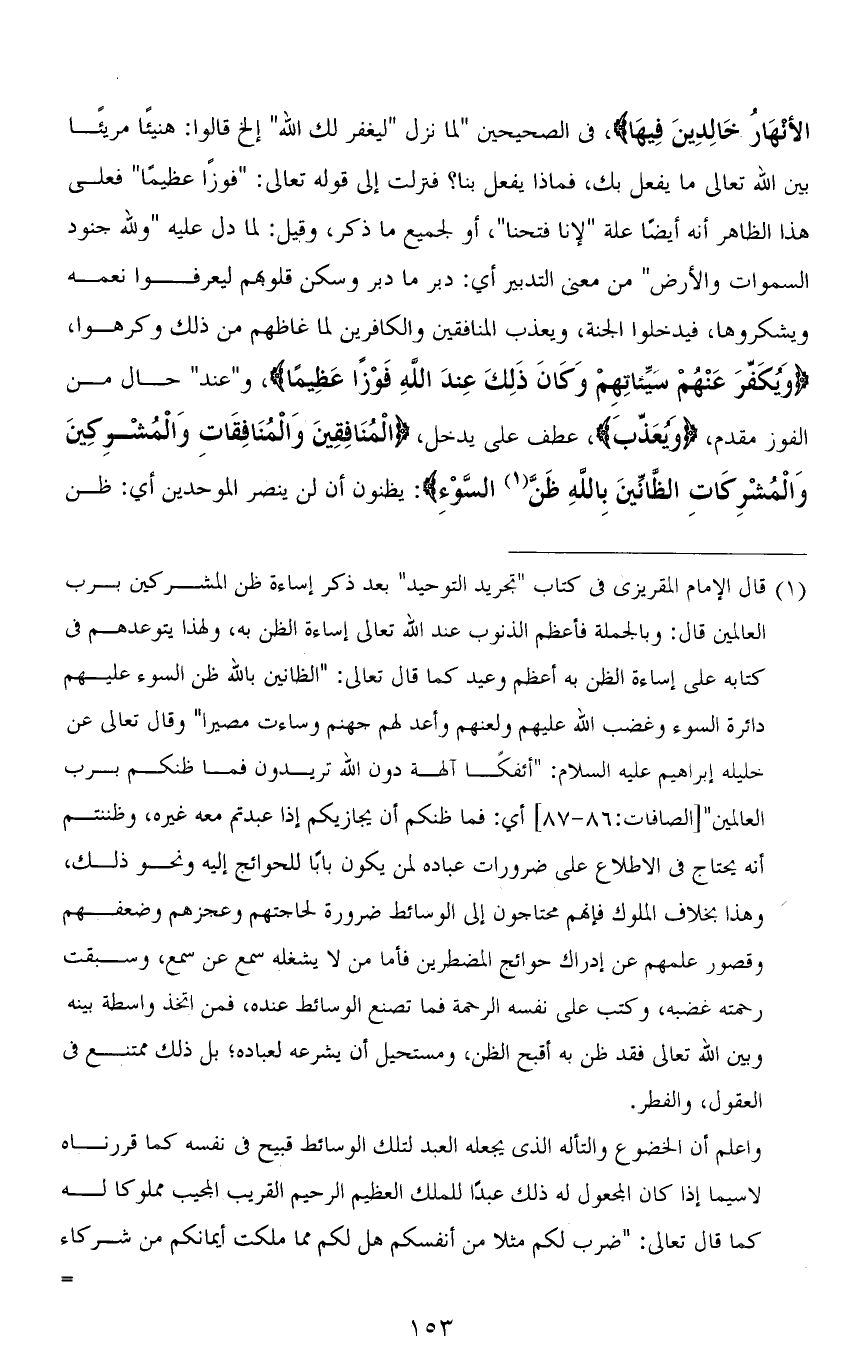 الأَنْهَارُ خَالِدِينَ فِيهَا﴾، فى الصحيحين "لما نزل "ليغفر لك الله" إلخ قالوا: هنيئًا مريئًا
بين الله تعالى ما يفعل بك، فماذا يفعل بنا؟ فنزلت إلى قوله تعالى: "فوزًا عظيمًا" فعلى
هذا الظاهر أنه أيضًا علة "لإنا فتحنا"، أو لجميع ما ذكر، وقيل: لما دل عليه "ولله جنود
السموات والأرض" من معنى التدبير أي: دبر ما دبر وسكن قلوبهم ليعرفوا نعمه
ويشكروها، فيدخلوا الجنة، ويعذب المنافقين والكافرين لما غاظهم من ذلك وكرهوا،
﴿وَيُكَفِّرَ عَنْهُمْ سَيِّئَاتِهِمْ وَكَانَ ذَلِكَ عِندَ اللَّهِ فَوْزًا عَظِيمًا﴾، و"عند" حال من
الفوز مقدم، ﴿وَيُعَذِّبَ﴾، عطف على يدخل، ﴿الْمُنَافِقِينَ وَالْمُنَافِقَاتِ وَالْمُشْرِكِينَ
وَالْمُشْرِكَاتِ الظَّانِّينَ بِاللَّهِ ظَنَّ(١) السَّوْءِ﴾: يظنون أن لن ينصر الموحدين أي: ظن
(١) قال الإمام المقريزى فى كتاب "تجريد التوحيد" بعد ذكر إساءة ظن المشركين برب
العالمين قال: وبالجملة فأعظم الذنوب عند الله تعالى إساءة الظن به، ولهذا يتوعدهم فى
كتابه على إساءة الظن به أعظم وعيد كما قال تعالى: "الظانين بالله ظن السوء عليهم
دائرة السوء وغضب الله عليهم ولعنهم وأعد لهم جهنم وساءت مصيرا" وقال تعالى عن
خليله إبراهيم عليه السلام: "أئفكًا آلهة دون الله تريدون فما ظنكم برب
العالمين"[الصافات:٨٦-٨٧] أي: فما ظنكم أن يجازيكم إذا عبدتم معه غيره، وظننتم
أنه يحتاج فى الاطلاع على ضرورات عباده لمن يكون بابًا للحوائج إليه ونحو ذلك،
وهذا بخلاف الملوك فإنهم محتاجون إلى الوسائط ضرورة لحاجتهم وعجزهم وضعفهم
وقصور علمهم عن إدراك حوائج المضطرين فأما من لا يشغله سمع عن سمع، وسبقت
رحمته غضبه، وكتب على نفسه الرحمة فما تصنع الوسائط عنده، فمن اتخذ واسطة بينه
وبين الله تعالى فقد ظن به أقبح الظن، ومستحيل أن يشرعه لعباده؛ بل ذلك ممتنع فى
العقول، والفطر.
واعلم أن الخضوع والتأله الذى يجعله العبد لتلك الوسائط قبيح فى نفسه كما قررناه
لاسيما إذا كان المجعول له ذلك عبدًا للملك العظيم الرحيم القريب المجيب مملوكا له
كما قال تعالى: "ضرب لكم مثلا من أنفسكم هل لكم مما ملكت أيمانكم من شركاء
=
١٥٣